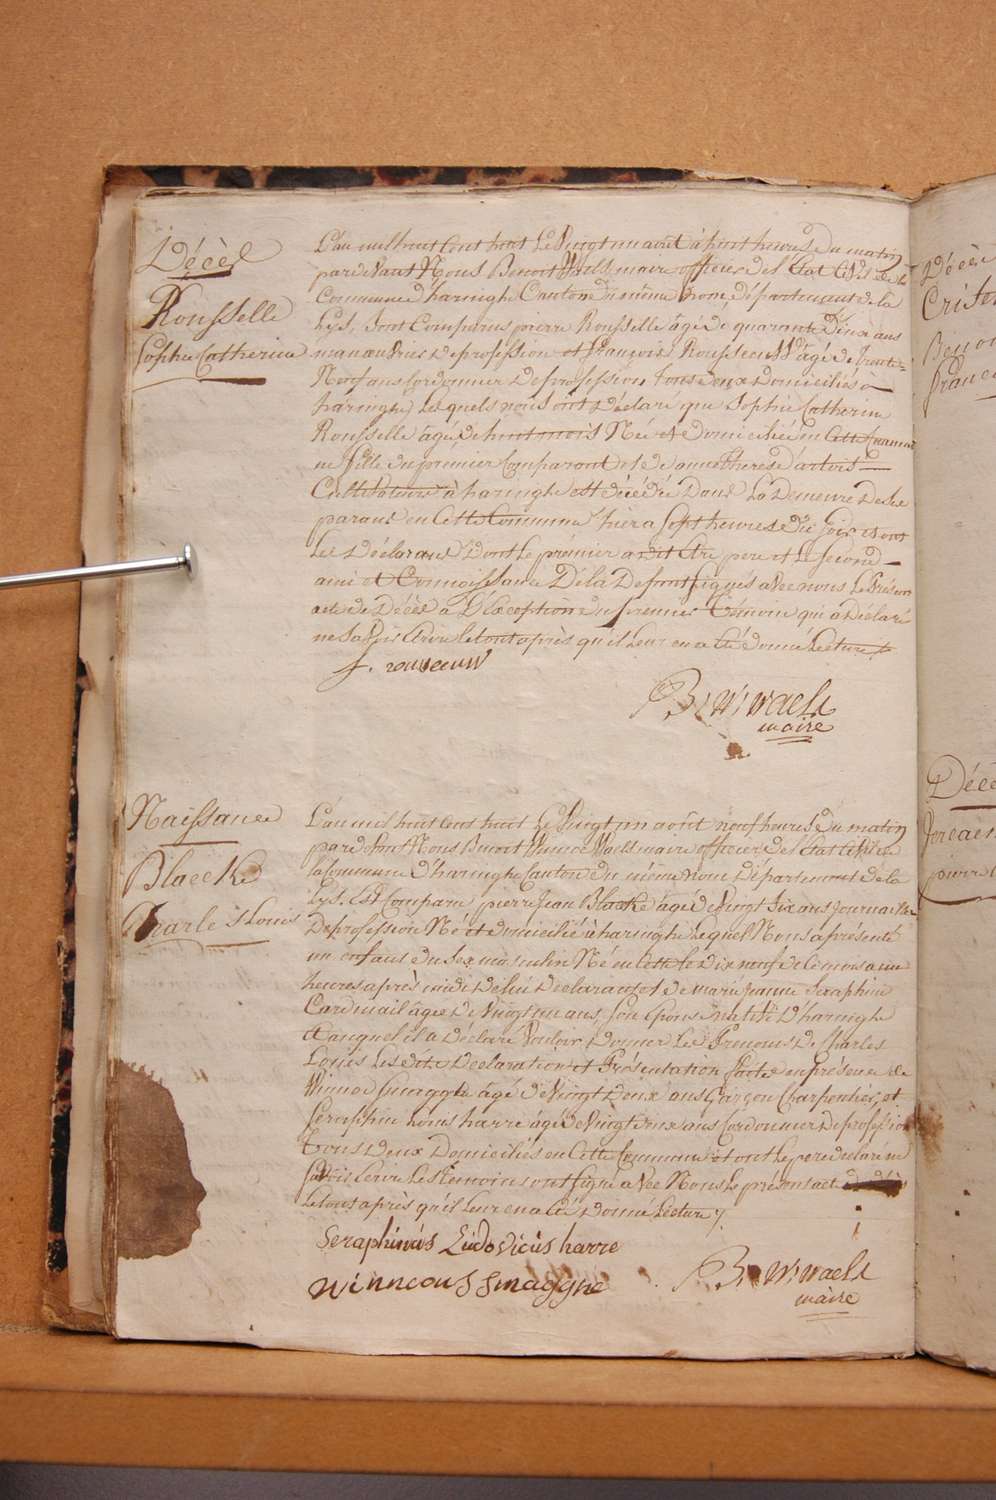 Décès
Rousselle
Sophie Catherine
L'an mil huit cent huit le Vingt un août à huit heures du matin
pardevant Nous Benoit maire officier de l'Etat Civil de la
Commune d'haringhe Canton du même nom, département de la
Lys, sont Comparus pierre Rousselle âgé de quarante Deux ans
manœuvrier de profession et françois Rousseeuw âgé de trente
Neuf ans Cordonnier de profession tous deux domiciliés à
haringhe, lesquels nous ont déclaré que Sophie Catherine
Rousselle âgée de huit mois Née et domiciliée en Cette Commu
ne fille du premier Comparant et de anne Therese d'artois
à haringhe est décédée Dans La Demeure
en Cette Commune hier a Sept heures du Soir et ont
les Déclarans dont le prémier a dit être père et le second
ami et Connoissance De la Defunte signés avec nous le Présent
acte de Décès à L'Exception du premier Témoin qui a déclaré
ne savoir écrire le tout après qu'il leur en a été donné lecture
f. rousseeuw
B: W: Waels
maire
Naissance
Blaecke
Charles Louis
L'an mil huit cent huit le Vingt un août neuf heures du matin
pardevant Nous Benoit Winoc Waels maire officier de l'Etat Civil de
la Commune d'haringhe Canton du même nom Département de la
Lys, Est Comparu pierre Jean Blaecke âgé de Vingt Six ans Journailler
De profession Né et domicilié à haringhe lequel Nous a présenté
un enfant du Sex masculin Né en Cette le dix neuf de ce mois a une
heures après midi de lui Declarant et de marie jeanne Seraphine
Cardinael âgée De Vingt un ans Son épouse native D'haringhe
et auquel il a Déclaré Vouloir Donner les Prénoms De Charles
Louis Lesdite Déclaration et Présentation faites en présence de
Winoc Smagghe âgé de Vingt Deux ans Garçon Charpentier, et
Seraphin Louis harre âgé de Vingt deux ans Cordonnier De profession
tous deux Domiciliés en Cette Commune et ont le pere declaré ne
savoir écrire les témoins ont signé avec Nous le présent act
le tout après qu'il leur en a été donné Lecture
Seraphinus Ludovicus harre
winnocus smagghe
B: W: Waels
maire
Décès
Benoi
franc
Décè
pierre